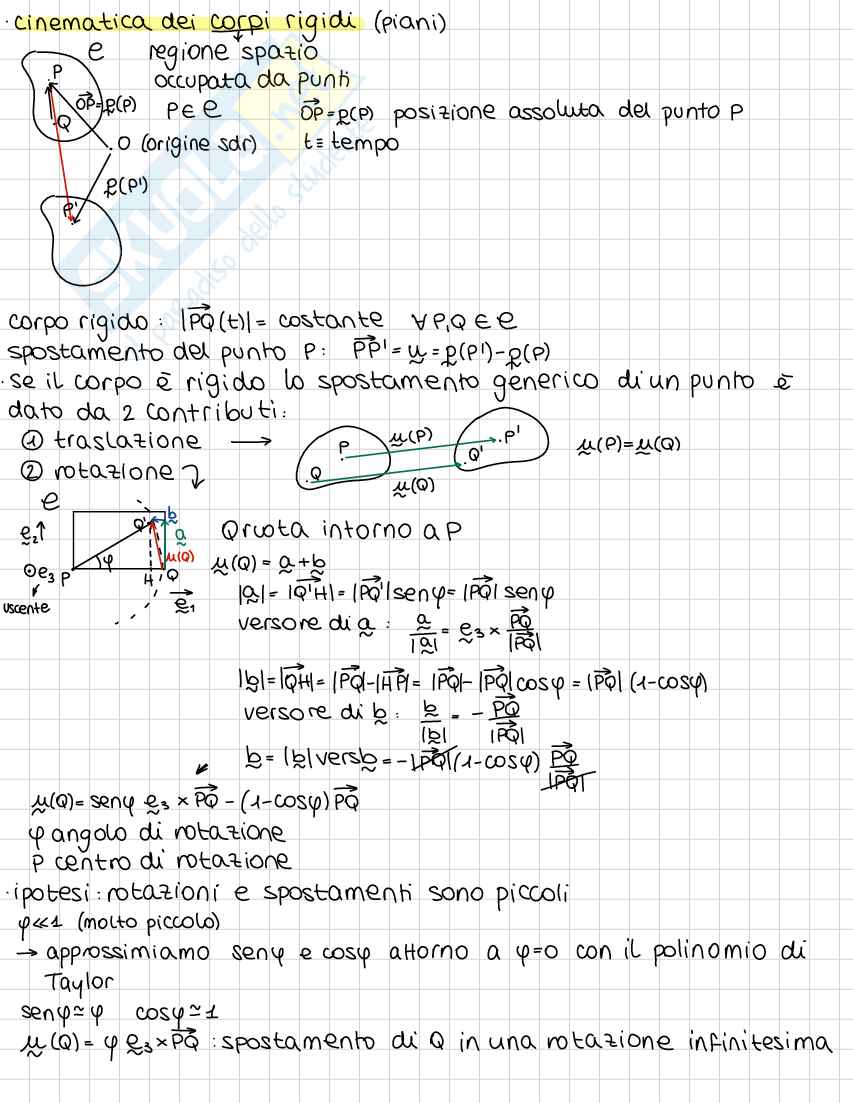 · cinematica dei corpi rigidi (piani)
e regione spazio
occupata da punti
P
OP=r(P) P ∈ e OP = r(P) posizione assoluta del punto P
Q
O (origine sdr) t ≡ tempo
r(P')
P'
SKUOLA.net
il paradiso dello studente
corpo rigido: |PQ(t)| = costante ∀ P,Q ∈ e
spostamento del punto P: PP' = u = r(P') - r(P)
· se il corpo è rigido lo spostamento generico di un punto è
dato da 2 contributi:
① traslazione → P u(P) P' u(P) = u(Q)
② rotazione Q u(Q) Q'
e
e2↑ Q' b a φ u(Q) Q ruota intorno a P
⊙e3 P H Q u(Q) = a + b
uscente e1
|a| = |Q'H| = |PQ'| senφ = |PQ| senφ
versore di a: a/|a| = e3 × PQ/|PQ|
|b| = |QH| = |PQ| - |HP| = |PQ| - |PQ| cosφ = |PQ| (1-cosφ)
versore di b: b/|b| = - PQ/|PQ|
b = |b| vers b = - |PQ| (1-cosφ) PQ/|PQ|
u(Q) = senφ e3 × PQ - (1-cosφ) PQ
φ angolo di rotazione
P centro di rotazione
· ipotesi: rotazioni e spostamenti sono piccoli
φ≪1 (molto piccolo)
→ approssimiamo senφ e cosφ attorno a φ=0 con il polinomio di
Taylor
senφ ≃ φ cosφ ≃ 1
u(Q) = φ e3 × PQ : spostamento di Q in una rotazione infinitesima